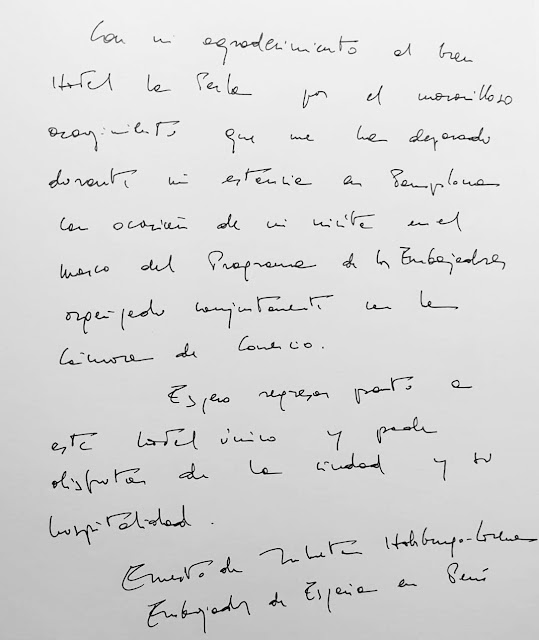 Con mi agradecimiento al bien
Hotel La Perla por el maravilloso
acogimiento que me ha deparado
durante mi estancia en Pamplona
con ocasión de mi visita en el
marco del Programa de los Embajadores
organizado conjuntamente con la
Cámara de Comercio.
Espero regresar pronto a
este hotel único y poder
disfrutar de la ciudad y su
hospitalidad.
Ernesto de Zulueta Habsburgo-Lorena
Embajador de España en Perú